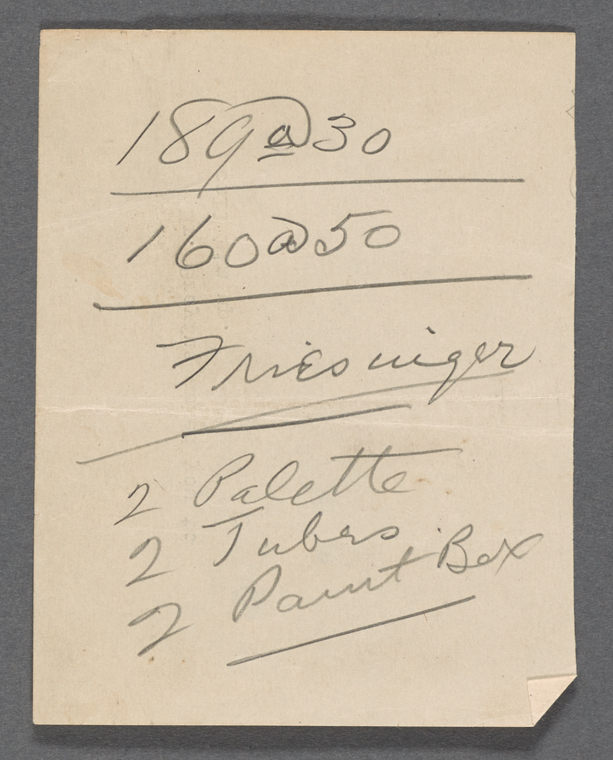 189 @ 30
160 @ 50
Friesinger
2 Palette
2 Tubes
2 Paint Box